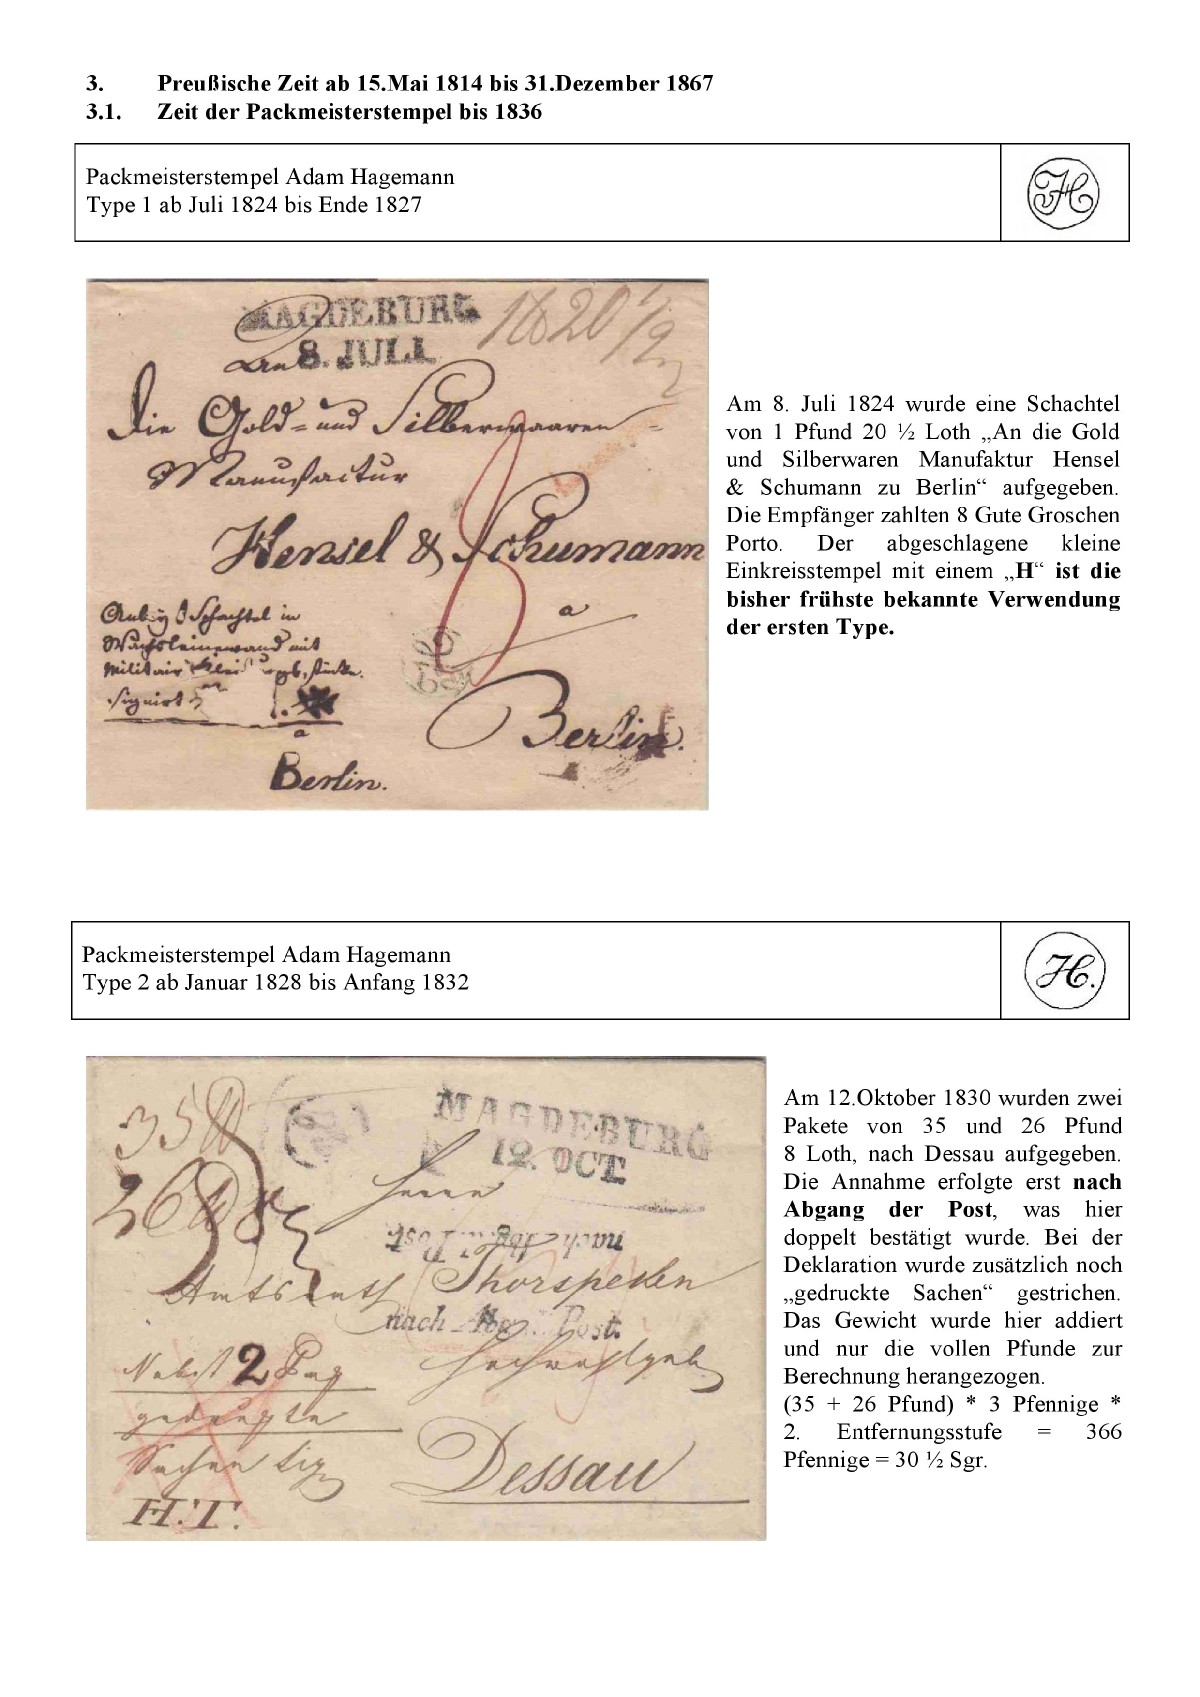 3. Preußische Zeit ab 15.Mai 1814 bis 31.Dezember 1867
3.1. Zeit der Packmeisterstempel bis 1836
Packmeisterstempel Adam Hagemann
Type 1 ab Juli 1824 bis Ende 1827
H
MAGDEBURG
8. JULI
An
Die Gold- und Silberwaaren-
Manufactur
Hensel & Schumann
a
Berlin.
Schachtel in
Wachsleinewand mit
Militair
signirt
a
Berlin.
Am 8. Juli 1824 wurde eine Schachtel
von 1 Pfund 20 ½ Loth „An die Gold
und Silberwaren Manufaktur Hensel
& Schumann zu Berlin“ aufgegeben.
Die Empfänger zahlten 8 Gute Groschen
Porto. Der abgeschlagene kleine
Einkreisstempel mit einem „H“ ist die
bisher frühste bekannte Verwendung
der ersten Type.
Packmeisterstempel Adam Hagemann
Type 2 ab Januar 1828 bis Anfang 1832
H.
MAGDEBURG
12. OCT.
35
26
Herrn
nach Abg. d. Post.
Amtsrath Thorspecken
nach Abg. d. Post.
Nebst 2 Paq
gedruckte
Sachen sig
H.T.
Dessau
Am 12.Oktober 1830 wurden zwei
Pakete von 35 und 26 Pfund
8 Loth, nach Dessau aufgegeben.
Die Annahme erfolgte erst nach
Abgang der Post, was hier
doppelt bestätigt wurde. Bei der
Deklaration wurde zusätzlich noch
„gedruckte Sachen“ gestrichen.
Das Gewicht wurde hier addiert
und nur die vollen Pfunde zur
Berechnung herangezogen.
(35 + 26 Pfund) * 3 Pfennige *
2. Entfernungsstufe = 366
Pfennige = 30 ½ Sgr.